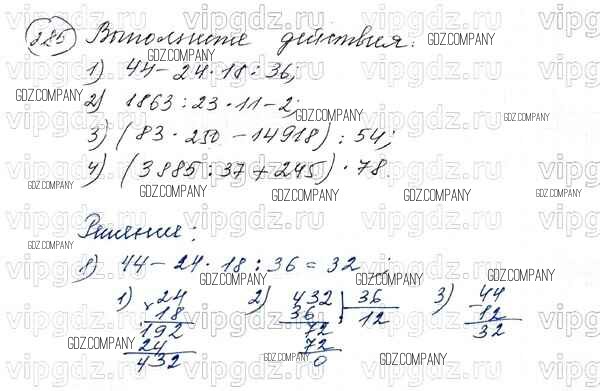 285 Выполните действия:
1) 44 - 24 · 18 : 36;
2) 1863 : 23 · 11 - 2;
3) (83 · 250 - 14918) : 54;
4) (3885 : 37 + 245) · 78.
Решение:
1) 44 - 24 · 18 : 36 = 32 ;
1) 24 2) 432 36 3) 44
18 36 12 12
192 72 32
24 72
432 0
GDZ.COMPANY
vipgdz.ru